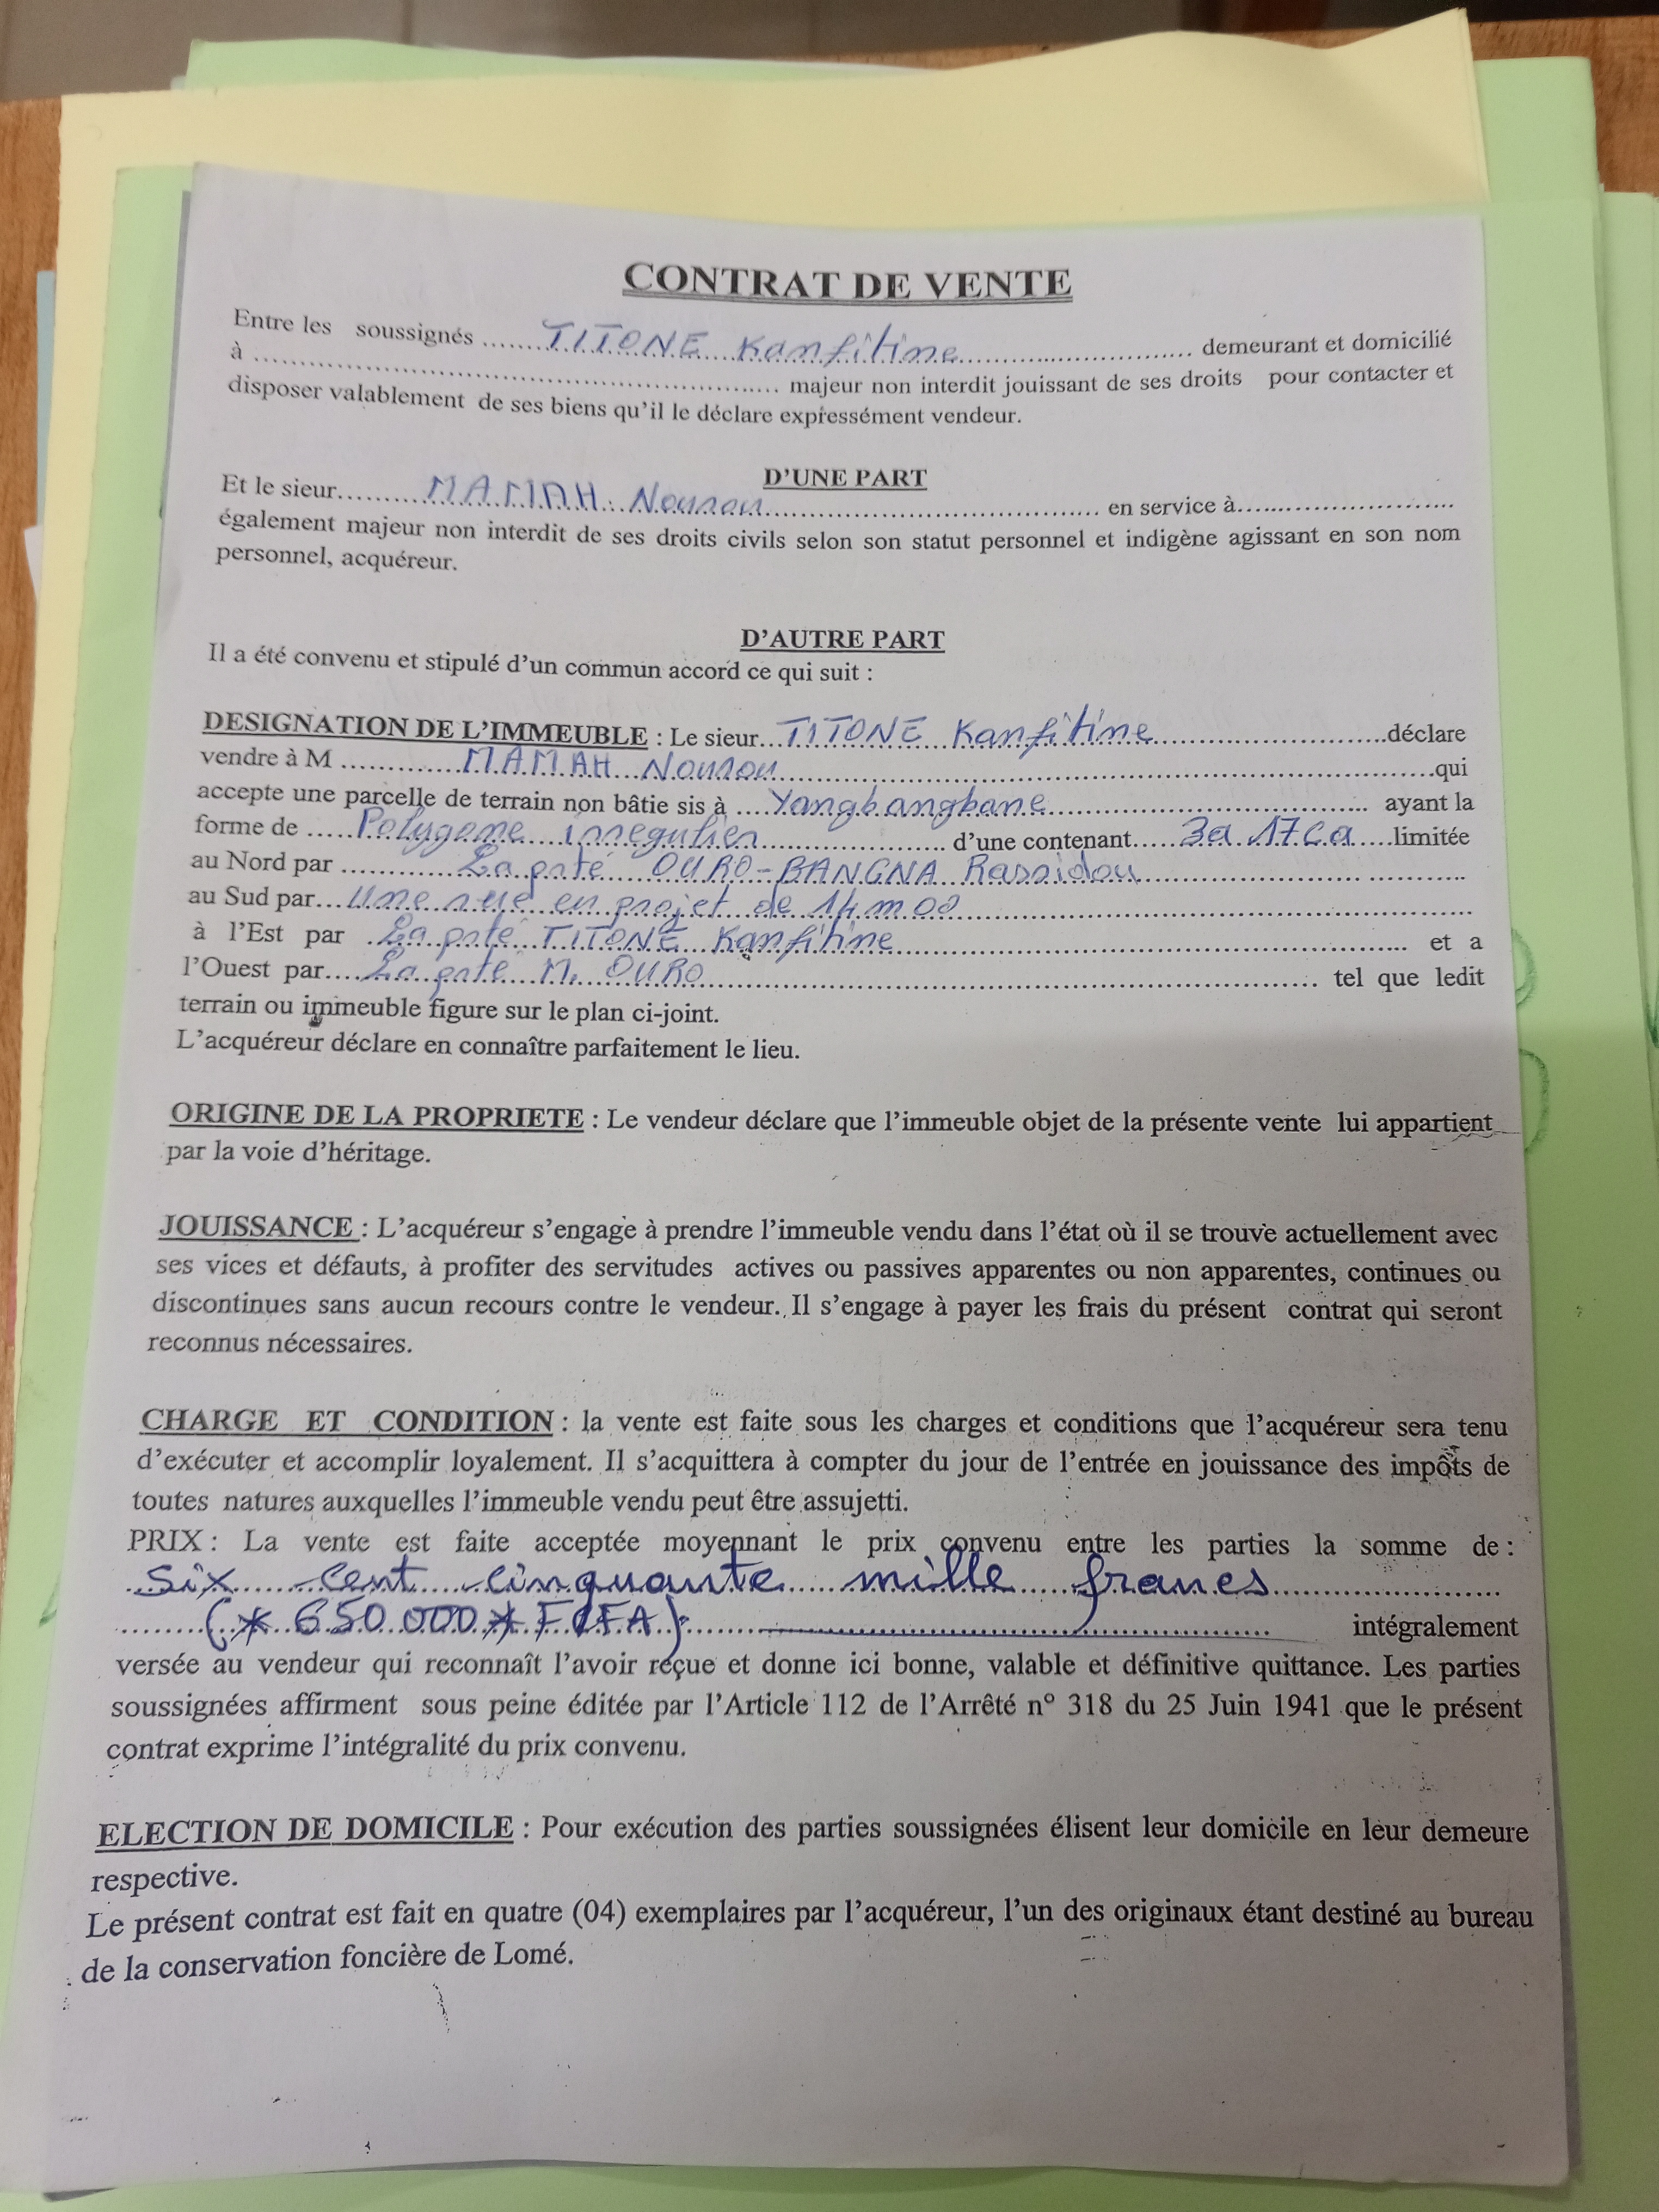 CONTRAT DE VENTE
Entre les soussignés ....... TITONE Kanfitine .......... demeurant et domicilié
à .......... majeur non interdit jouissant de ses droits pour contacter et
disposer valablement de ses biens qu'il le déclare expressément vendeur.
D'UNE PART
Et le sieur.......... MAMAH Nourou .......... en service à..........
également majeur non interdit de ses droits civils selon son statut personnel et indigène agissant en son nom
personnel, acquéreur.
D'AUTRE PART
Il a été convenu et stipulé d'un commun accord ce qui suit :
DESIGNATION DE L'IMMEUBLE : Le sieur... TITONE Kanfitine ..........déclare
vendre à M .......... MAMAH Nourou ..........qui
accepte une parcelle de terrain non bâtie sis à .... Yangbangbane .......... ayant la
forme de ..... Polygone irregulier .......... d'une contenant..... 3a 17ca .....limitée
au Nord par .......... La pté OURO-BANGNA Rassidou ..........
au Sud par... Une rue en projet de 14m00 ..........
à l'Est par .. La pté TITONE Kanfitine .......... et a
l'Ouest par.... La pté M. OURO .......... tel que ledit
terrain ou immeuble figure sur le plan ci-joint.
L'acquéreur déclare en connaître parfaitement le lieu.
ORIGINE DE LA PROPRIETE : Le vendeur déclare que l'immeuble objet de la présente vente lui appartient
par la voie d'héritage.
JOUISSANCE : L'acquéreur s'engage à prendre l'immeuble vendu dans l'état où il se trouve actuellement avec
ses vices et défauts, à profiter des servitudes actives ou passives apparentes ou non apparentes, continues ou
discontinues sans aucun recours contre le vendeur. Il s'engage à payer les frais du présent contrat qui seront
reconnus nécessaires.
CHARGE ET CONDITION : la vente est faite sous les charges et conditions que l'acquéreur sera tenu
d'exécuter et accomplir loyalement. Il s'acquittera à compter du jour de l'entrée en jouissance des impôts de
toutes natures auxquelles l'immeuble vendu peut être assujetti.
PRIX : La vente est faite acceptée moyennant le prix convenu entre les parties la somme de :
Six cent cinquante mille francs ..........
..........(* 650.000 * F CFA) .......... intégralement
versée au vendeur qui reconnaît l'avoir reçue et donne ici bonne, valable et définitive quittance. Les parties
soussignées affirment sous peine éditée par l'Article 112 de l'Arrêté n° 318 du 25 Juin 1941 que le présent
contrat exprime l'intégralité du prix convenu.
ELECTION DE DOMICILE : Pour exécution des parties soussignées élisent leur domicile en leur demeure
respective.
Le présent contrat est fait en quatre (04) exemplaires par l'acquéreur, l'un des originaux étant destiné au bureau
de la conservation foncière de Lomé.